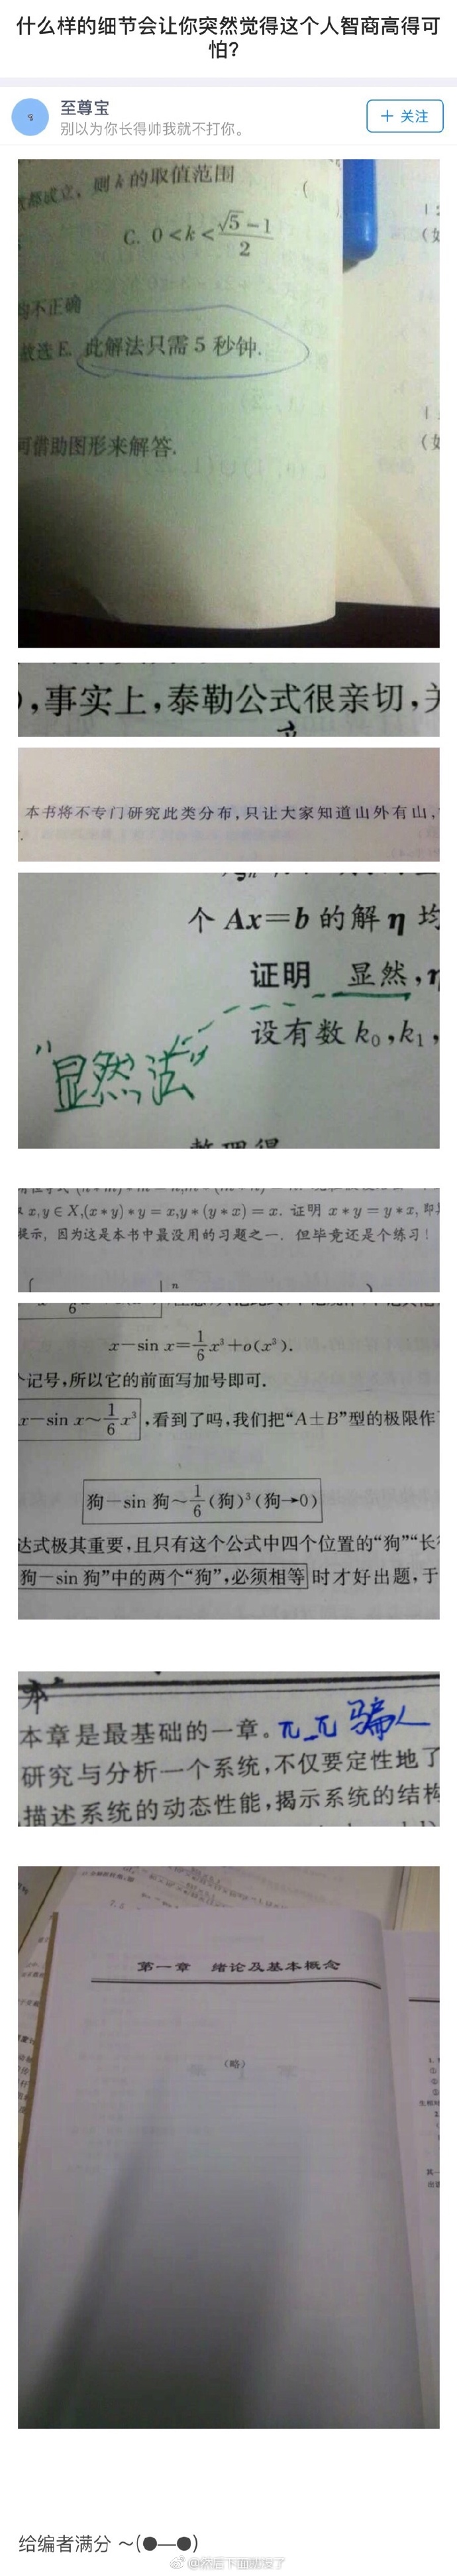 什么样的细节会让你突然觉得这个人智商高得可
怕?
至尊宝
别以为你长得帅我就不打你。
+ 关注
都成立，则k的取值范围
(
C. 0<k<\frac{\sqrt{5}-1}{2}
的不正确
故选E. 此解法只需5秒钟.
可借助图形来解答.
),事实上,泰勒公式很亲切,
本书将不专门研究此类分布,只让大家知道山外有山,
个 Ax=b 的解 η 均
证明 显然,η
设有数 k₀,k₁,
"显然法"
整理得
x,y∈X,(x*y)*y=x,y*(y*x)=x. 证明 x*y=y*x,
提示,因为这是本书中最没用的习题之一. 但毕竟还是个练习!
n
6
x-sin x=\frac{1}{6}x³+o(x³).
记号,所以它的前面写加号即可.
x-sin x~\frac{1}{6}x³,看到了吗,我们把“A±B”型的极限作
狗-sin 狗~\frac{1}{6}(狗)³(狗→0)
达式极其重要,且只有这个公式中四个位置的“狗”“长
狗-sin 狗”中的两个“狗”,必须相等时才好出题,于
本章是最基础的一章。 π_π 骗人
研究与分析一个系统,不仅要定性地了
描述系统的动态性能,揭示系统的结构
第一章 绪论及基本概念
(略)
给编者满分 ～(●—●)
@然后下面就没了